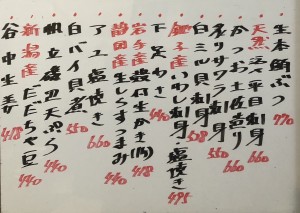 生本鮪ぶつ 770
天然 活〆平目刺身 660
かつお土佐造り 660
サワラ刺身 550
白ミル貝刺身
銚子産いわし刺身・塩焼き 495
下足わさ
岩手産 殻付生かき(内) 418
静岡産生しらすつまみ 440
アユ塩焼き 660
白バイ貝煮 550
帆立磯辺天ぷら 440
新潟産だだちゃ豆 440
谷中生姜 418